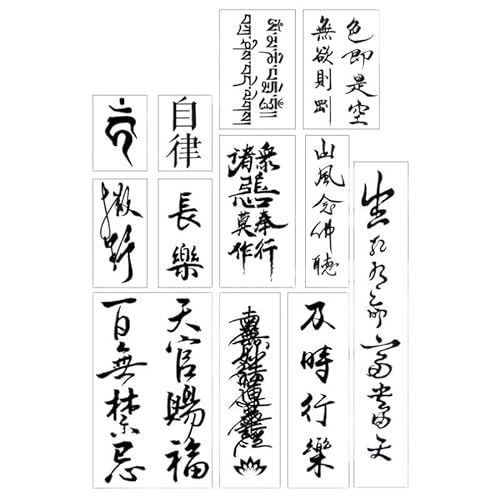 色即是空
無欲則剛
自律
眾善奉行
諸惡莫作
山風念佛聽
撒野
長樂
生死有命富貴在天
天官賜福
百無禁忌
及時行樂